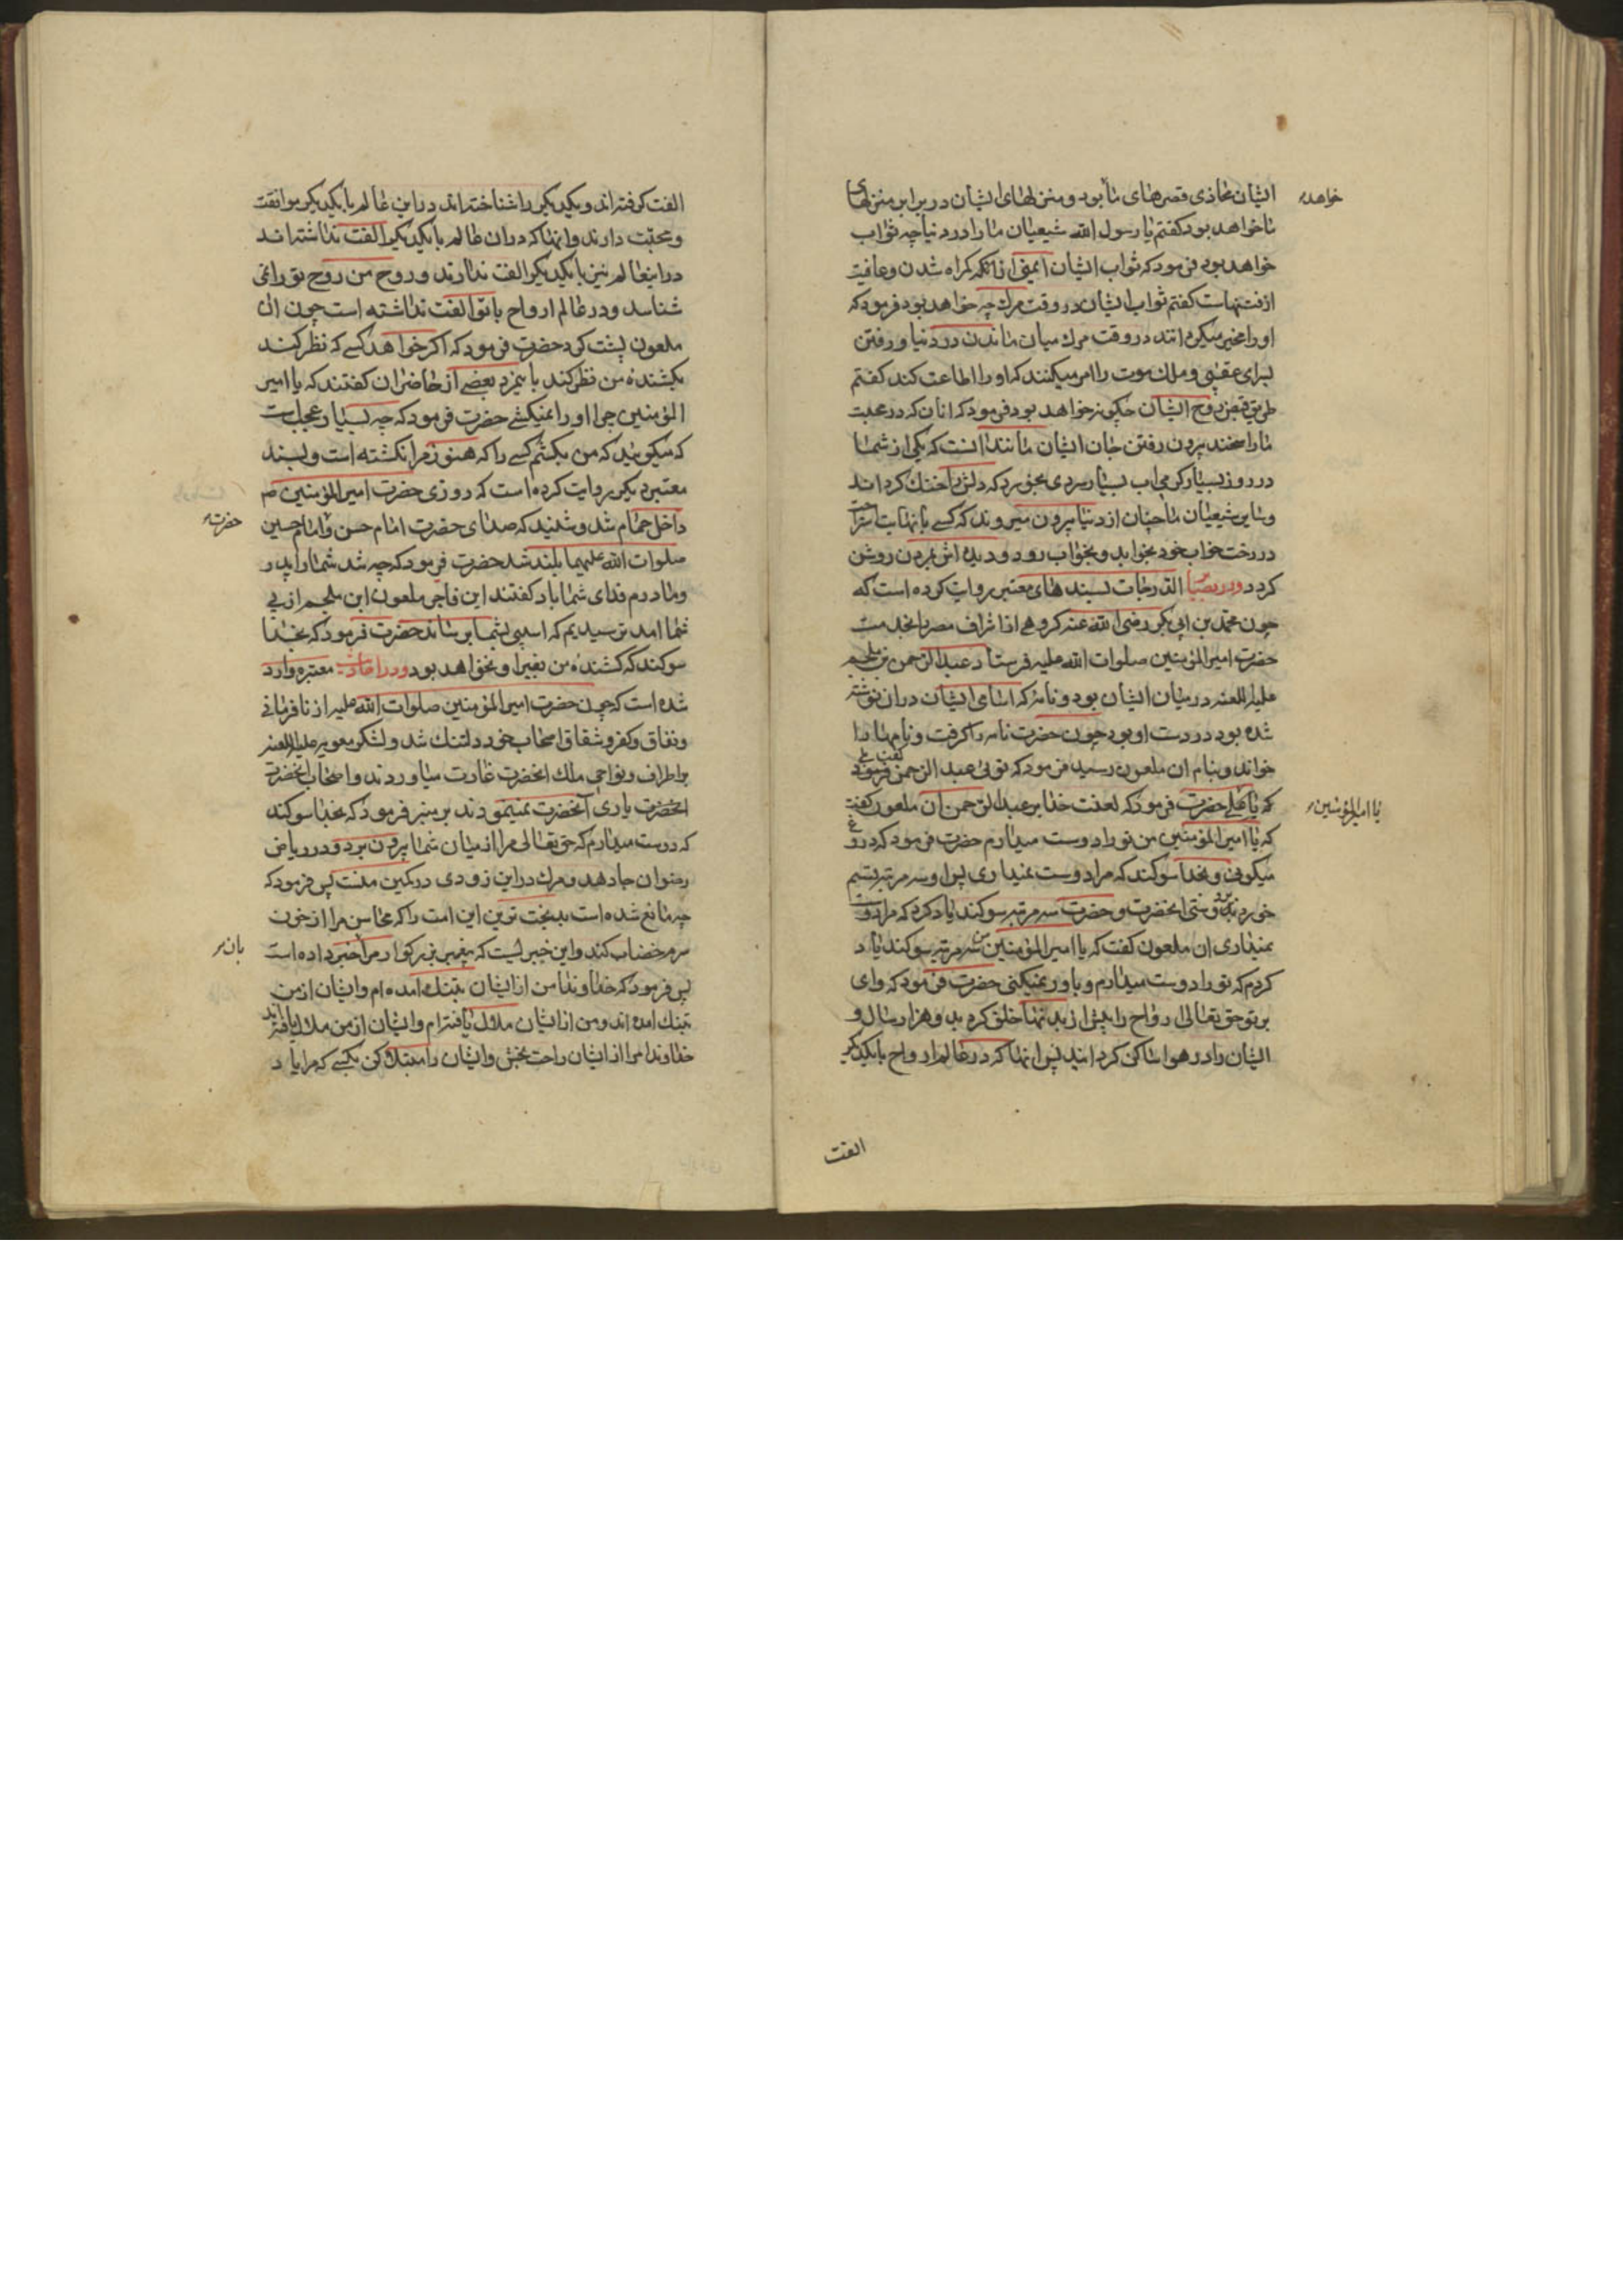 ایشان محاذی قصرهای ما بود و منزلهای ایشان در برابر منزلهای
خواهد
ما خواهد بود کفتم یا رسول الله شیعیان ما را در دنیا چه ثواب
خواهد بود فرمود که ثواب ایشان ایمنی از انکه کمراه شدن و عافیت
از فتنهاست کفتم ثواب ایشان در وقت مرك چه خواهد بود فرمود که
او را مخیر میکردانند در وقت مرك میان ماندن در دنیا و رفتن
بسرای عقبی و ملك موت را امر میکنند که او را اطاعت کند کفتم
طریق قبض روح ایشان چکونه خواهد بود فرمود که انان که در محبت
ما راسخند بیرون رفتن جان ایشان مانند انست که یکی از شما
در روز بسیار کرمی اب بسیار سردی بخورد که دلش را خنك کرداند
و سایر شیعیان ما چنان از دنیا بیرون میروند که کسی با نهایت استراحت
در رخت خواب خود بخوابد و بخواب رود و دیده اش بمردن روشن
کردد و در بصایر الدرجات بسند های معتبر روایت کرده است که
چون محمد بن ابی بکر رضی الله عنه کروهی از اشراف مصر را بخدمت
حضرت امیر المؤمنین صلوات الله علیه فرستاد عبد الرحمن بن ملجم
علیه اللعنه در میان ایشان بود و نامه که اسامی ایشان در ان نوشته
شده بود در دست او بود چون حضرت نامه را کرفت و نامها را
خواند و بنام ان ملعون رسید فرمود که توئی عبد الرحمن فرمود
که یا علی حضرت فرمود که لعنت خدا بر عبد الرحمن ان ملعون کفت
یا امیر المؤمنین
که یا امیر المؤمنین من تو را دوست میدارم حضرت فرمود که دروغ
میکوئی و بخدا سوکند که مرا دوست نمیداری پس او سه مرتبه قسم
خورد بر دوستی انحضرت و حضرت سه مرتبه سوکند یاد کرد که مرا دوست
نمیداری ان ملعون کفت که یا امیر المؤمنین من سه مرتبه سوکند یاد
کردم که تو را دوست میدارم و باور نمیکنی حضرت فرمود که وای
بر تو حق تعالی ارواح را پیش از بدنها خلق کرد بدو هزار سال و
ایشان را در هوا ساکن کردانید پس انها که در عالم ارواح با یکدیکر
الفت
الفت کرفته اند و یکدیکر را شناخته اند در این عالم با یکدیکر موافقت
و محبت دارند و انها که در ان عالم با یکدیکر الفت نداشته اند
در اینعالم نیز با یکدیکر الفت ندارند و روح من روح تو را نمی
شناسد و در عالم ارواح با تو الفت نداشته است چون ان
ملعون پشت کرد حضرت فرمود که اکر خواهد کسی که نظر کند
بکشندۀ من نظر کند باین مرد بعضی از حاضران کفتند که یا امیر
المؤمنین چرا او را نمیکشی حضرت فرمود که چه بسیار عجب است
که میکوئید که من بکشم کسی را که هنوز مرا نکشته است و بسند
معتبر دیکر روایت کرده است که روزی حضرت امیر المؤمنین ص
داخل حمام شد و شنید که صدای حضرت امام حسن و امام حسین
حضرت
صلوات الله علیهما بلند شد حضرت فرمود که چه شد شما را پدر
و مادرم فدای شما باد کفتند این فاجر ملعون ابن ملجم از پی
شما امد ترسیدیم که اسیبی بشما برساند حضرت فرمود که بخدا
سوکند که کشندۀ من بغیر او نخواهد بود و در احادیث معتبره وارد
شده است که چون حضرت امیر المؤمنین صلوات الله علیه از نافرمانی
و نفاق و کفر و شقاق اصحاب خود دلتنك شد و لشکر معویه علیه اللعنه
بر اطراف و نواحی ملك انحضرت غارت میاوردند و اصحاب انحضرت
انحضرت یاری آنحضرت نمینمودند بر منبر فرمود که بخدا سوکند
که دوست میدارم که حق تعالی مرا از میان شما بیرون برد و در ریاض
رضوان جا دهد و مرك در این زودی در کمین منست پس فرمود که
چه مانع شده است بدبخت ترین این امت را که محاسن مرا از خون
سرم خضاب کند و این خبریست که پیغمبر بزرکوار مرا خبر داده است
بان
پس فرمود که خداوندا من از ایشان بتنك امده ام و ایشان از من
بتنك امده اند و من از ایشان ملال یافته ام و ایشان از من ملال یافته اند
خداوندا مرا از ایشان راحت بخش و ایشان را مبتلا کن بکسی که مرا یاد